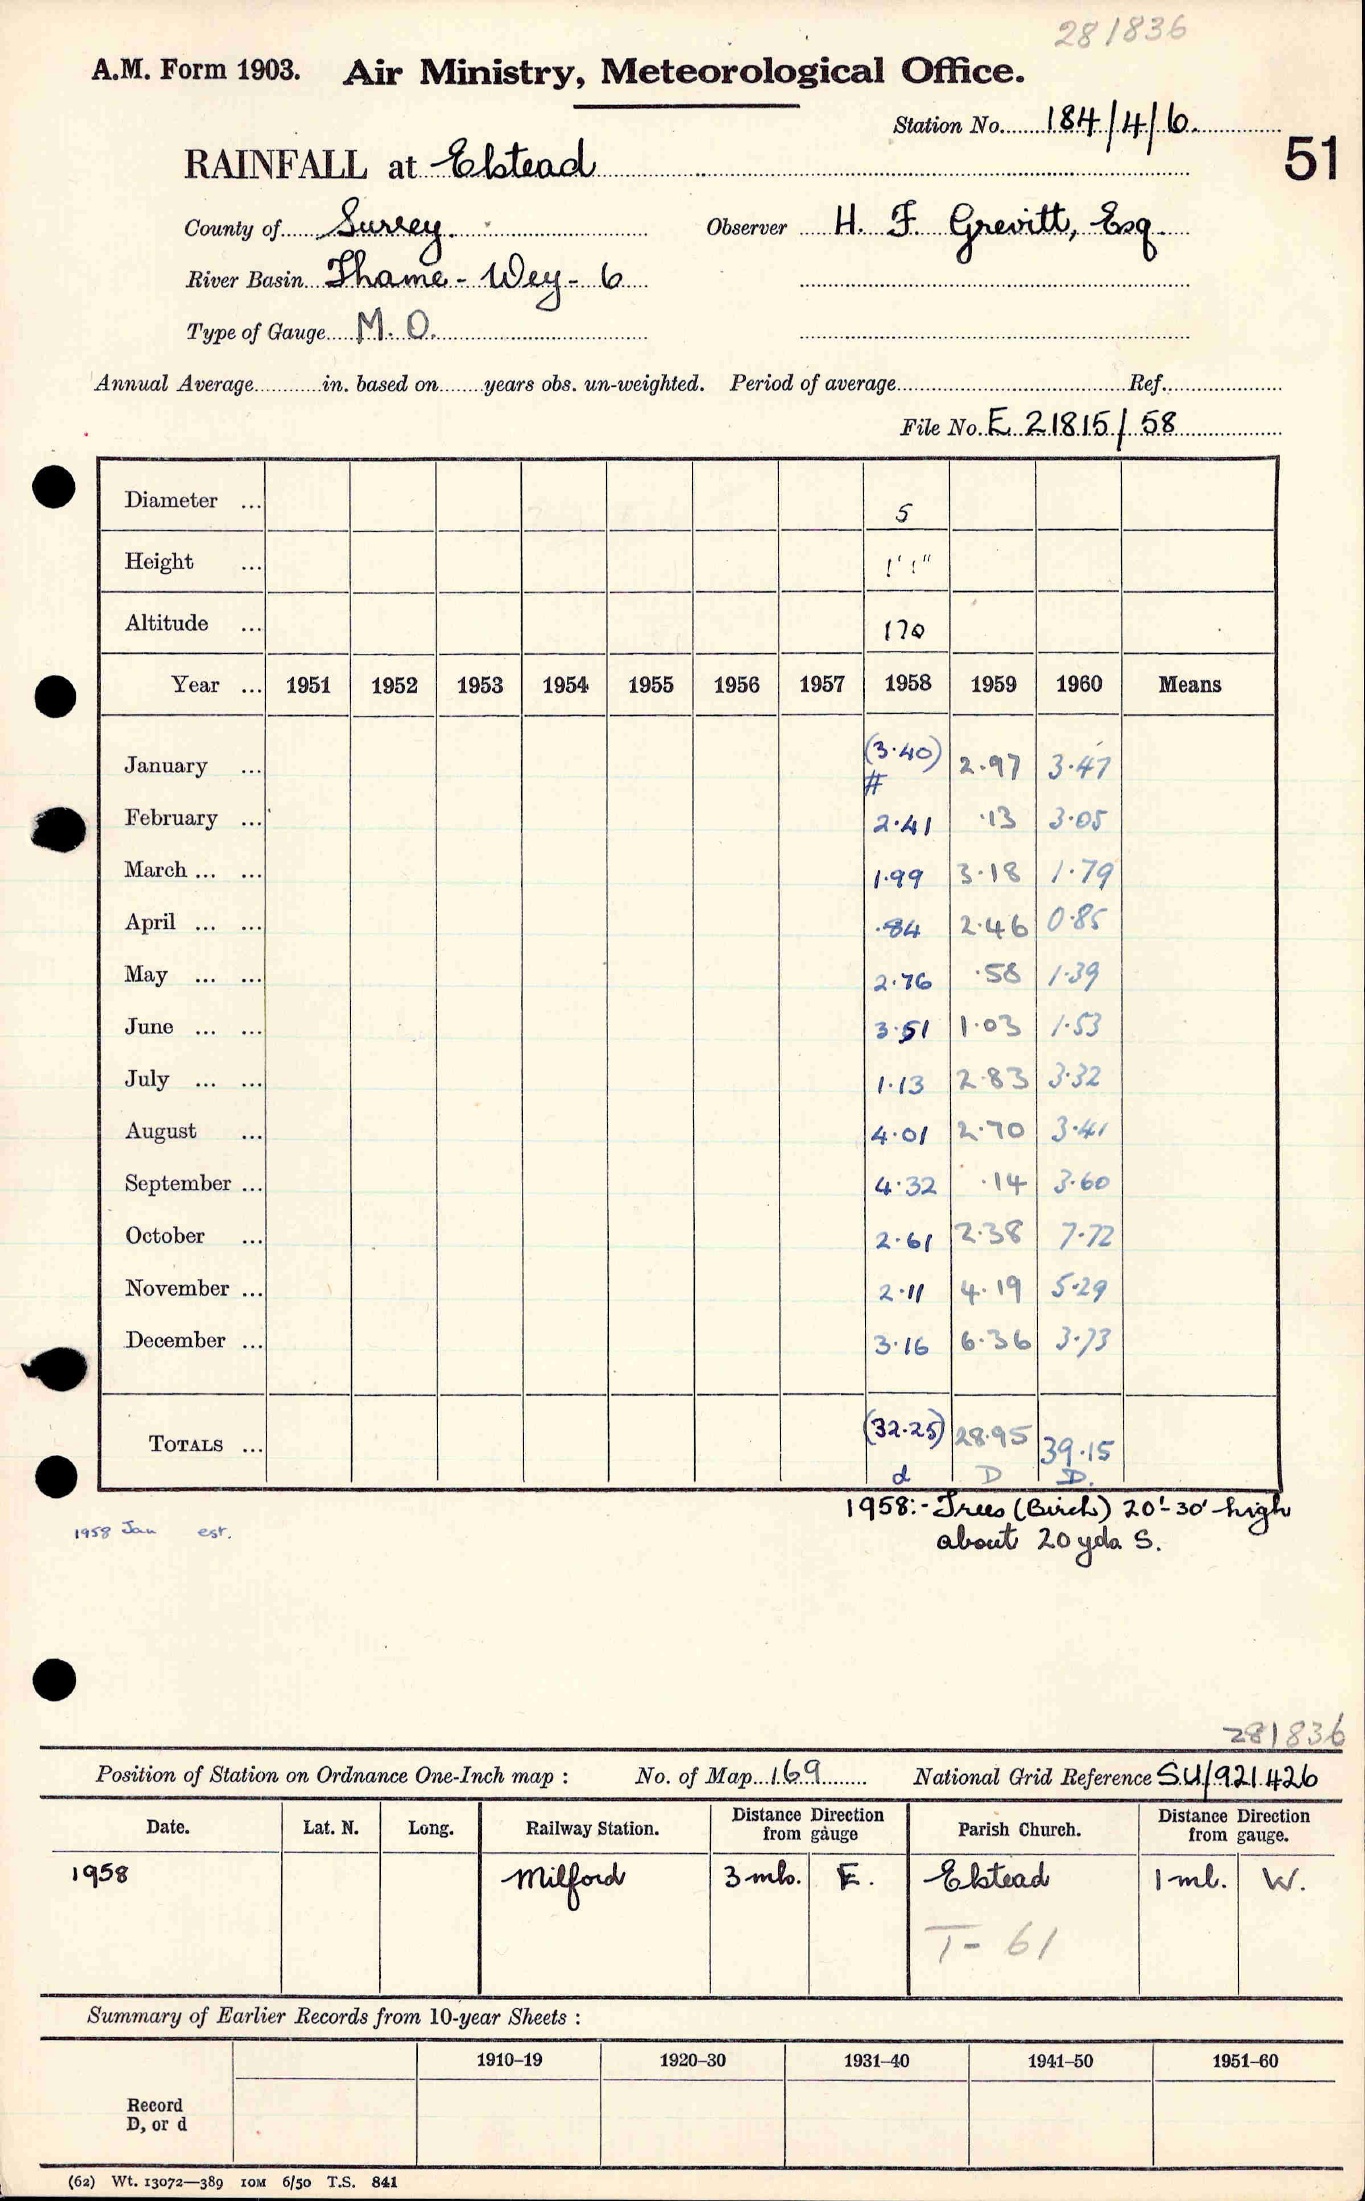 281836
A.M. Form 1903. Air Ministry, Meteorological Office.
Station No. 184/4/6.
51
RAINFALL at Elstead
County of Surrey. Observer H. F. Grevitt, Esq.
River Basin Thame - Wey - 6
Type of Gauge M.O.
Annual Average in. based on years obs. un-weighted. Period of average Ref.
File No. E 21815/58
Diameter ... 5
Height ... 1' 1"
Altitude ... 170
Year ... 1951 1952 1953 1954 1955 1956 1957 1958 1959 1960 Means
January ... (3.40) # 2.97 3.47
February ... 2.41 .13 3.05
March ... ... 1.99 3.18 1.79
April ... ... .84 2.46 0.85
May ... ... 2.76 .58 1.39
June ... ... 3.51 1.03 1.53
July ... ... 1.13 2.83 3.32
August ... 4.01 2.70 3.41
September ... 4.32 .14 3.60
October ... 2.61 2.38 7.72
November ... 2.11 4.19 5.29
December ... 3.16 6.36 3.73
TOTALS ... (32.25) 28.95 39.15
d D D.
1958:- Trees (Birch) 20'-30' high
about 20 yds S.
1958 Jan est.
281836
Position of Station on Ordnance One-Inch map : No. of Map 169 National Grid Reference SU/921426
Date. Lat. N. Long. Railway Station. Distance Direction from gauge Parish Church. Distance Direction from gauge.
1958 Milford 3 mls. E. Elstead 1 ml. W.
T- 61
Summary of Earlier Records from 10-year Sheets :
1910–19 1920–30 1931–40 1941–50 1951–60
Record
D, or d
(62) Wt. 13072—389 10M 6/50 T.S. 841